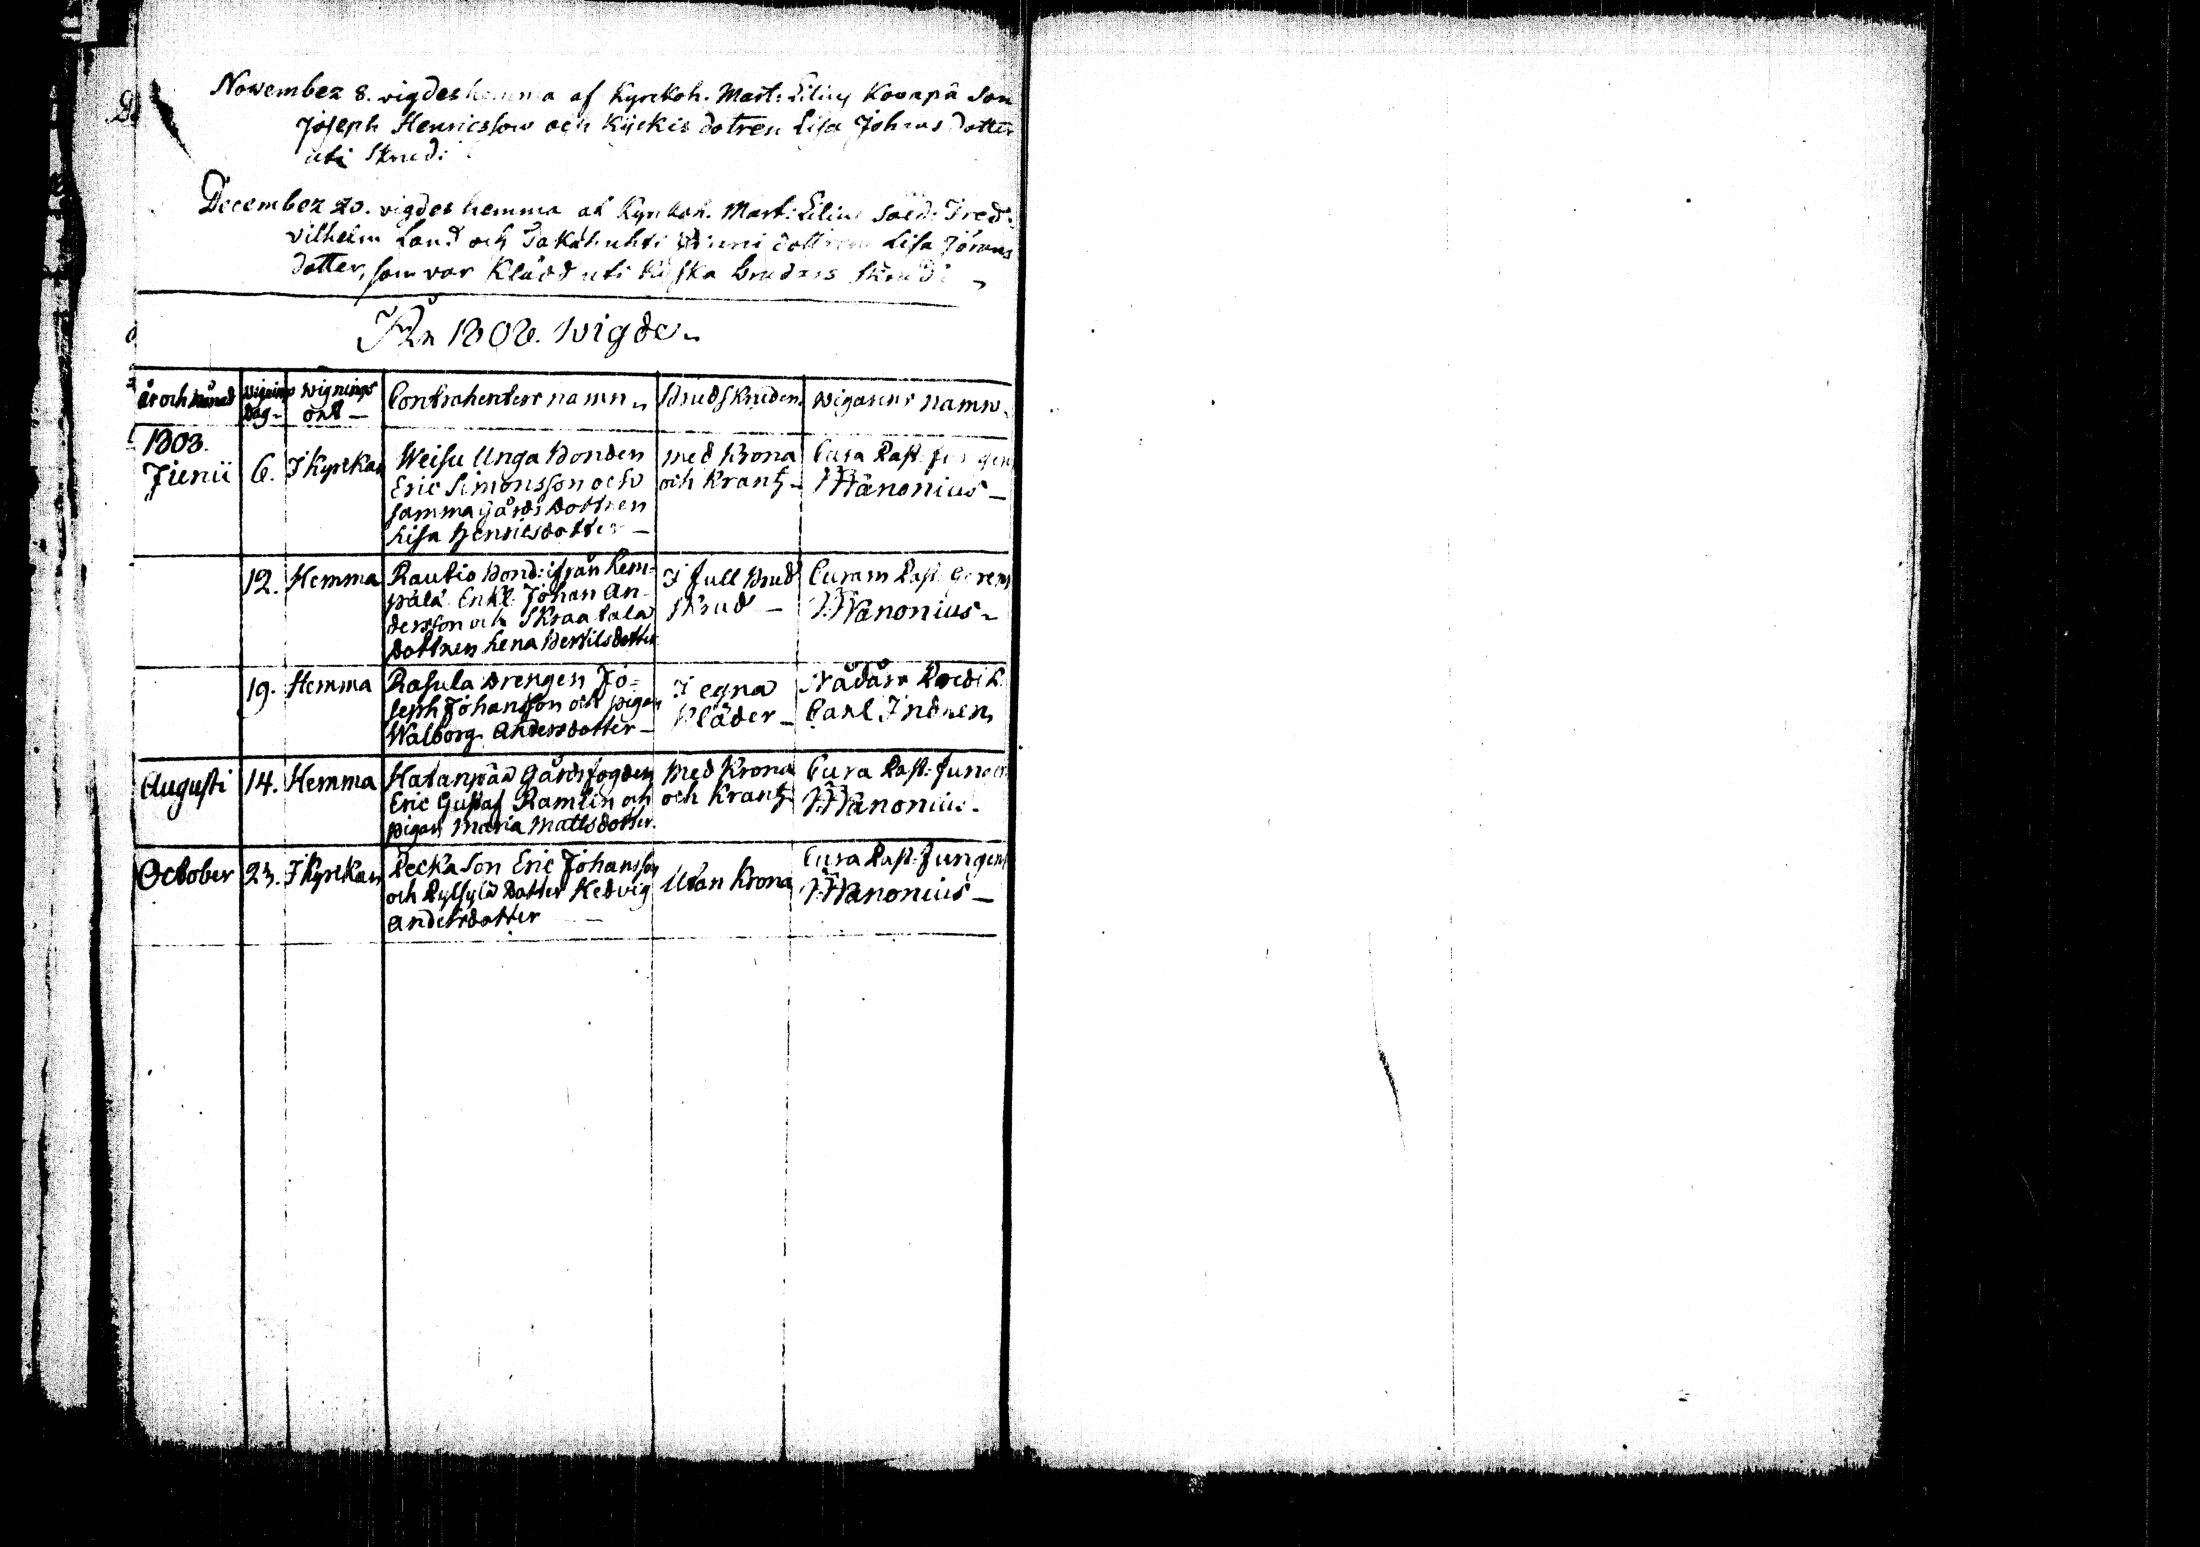 November 8. vigdes hemma af Kyrkoh. Mart: Lilius Kovapä Son
Joseph Henricsson och Kyckis dotren Lisa Johans dotter
uti Skrud:
December 20. vigdes hemma af Kyrkoh. Mart: Lilius Fred:
Vilhelm Land och dottren Lisa Jörans
dotter, som var Klädd uti Kyrka brudens Skrud:
År 1808. wigde
år och månad wignings Dag wignings ort Contrahenters namn Brudskruden wigarens namn
1808.
Junii 6. I Kyrkan Weisu Unga Bonden med Krona Cura Past: Jungens
Eric Simonsson och och Krantz Wänonius
samma gårds Dottren
Lisa Henricsdotter
12. Hemma Rautio Bond: ifrån Lem- I full Brud Curam Past: Gerens
pälä Enkl: Johan An- skrud Wänonius
dersson och Skraatala
Dottren Lena Bertilsdotter
19. Hemma Rasula Drengen Jo- I egna Nådårs Predik:
seph Johansson och pigan Kläder Carl Indren
Walborg Andersdotter
Augusti 14. Hemma Hatanpää Gårdsfogden Med Krona Cura Past: Jungens
Eric Gustaf Ramlin och och Krantz Wänonius
pigan Maria Mattsdotter.
October 23. I Kyrkan Pecka Son Eric Johansson Utan Krona Cura Past: Jungens
och Dotter Hedvig Wänonius
Andersdotter